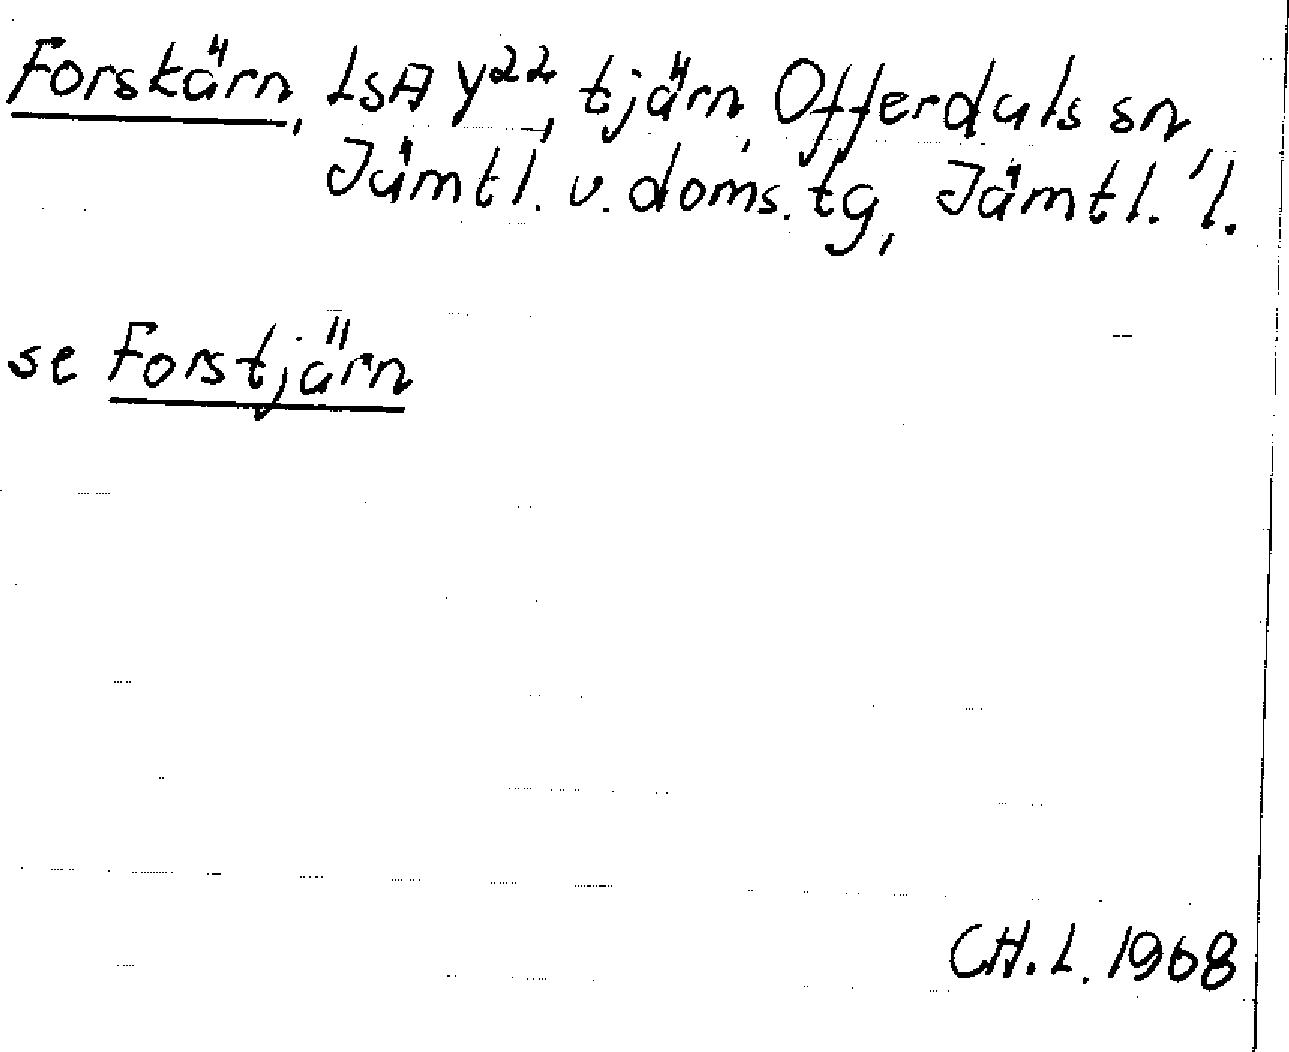 Forskärn, LSA Y22, tjärn, Offerdals sn,
Jämtl. v. doms. tg, Jämtl. l.
se Forstjärn
CH.L. 1968